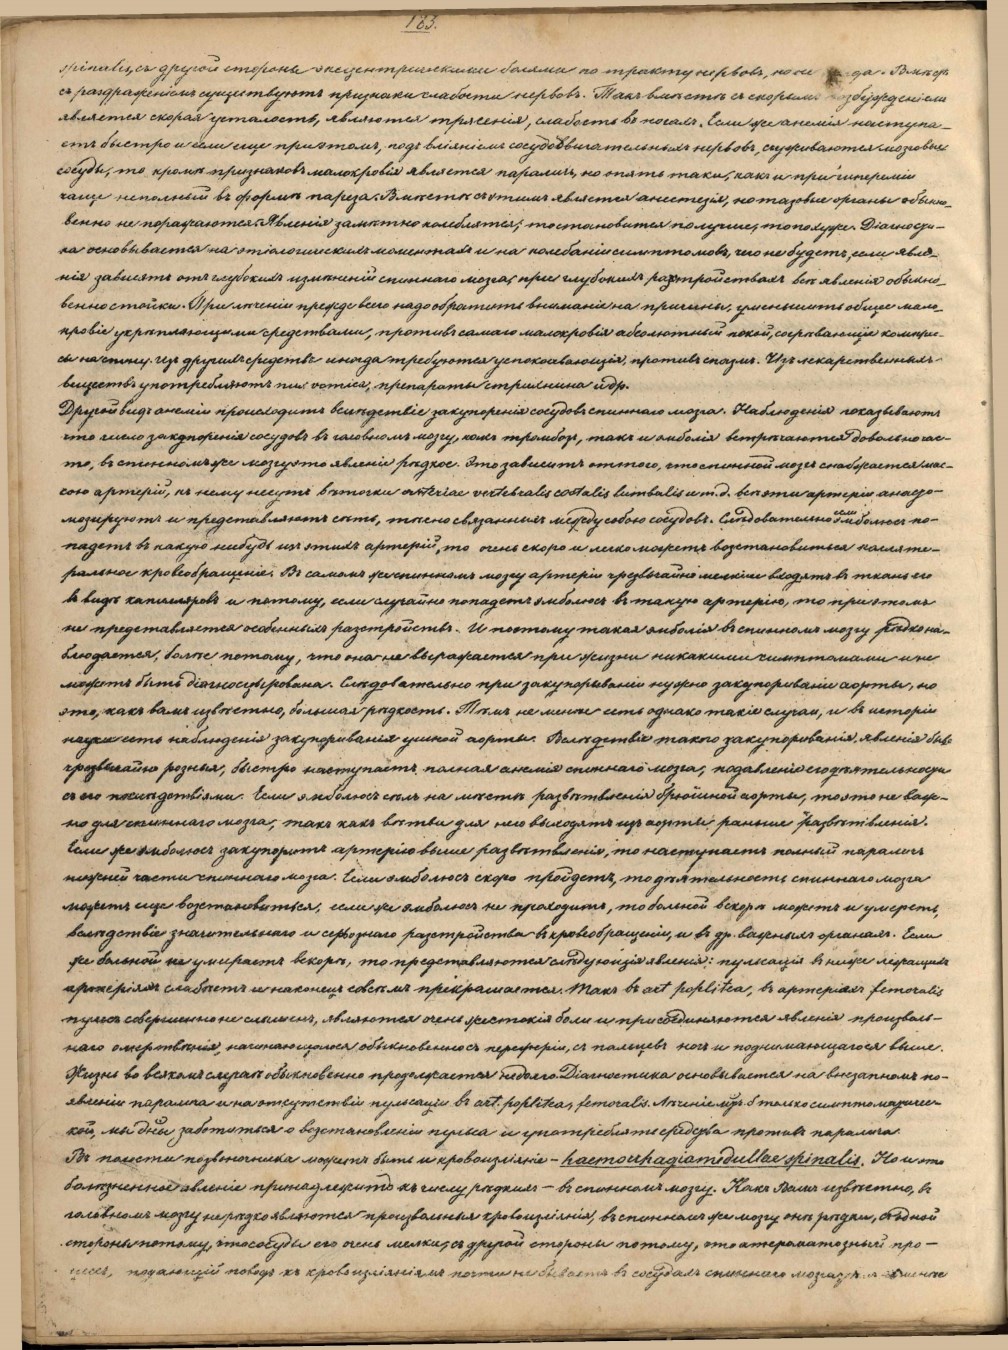 183.
spinalis, съ другой стороны эксцентрическими болями по тракту нервовъ, но не всегда. Вмѣстѣ
съ раздраженіемъ существуютъ признаки слабости нервовъ. Такъ вмѣстѣ съ скорымъ возбужденіемъ
является скорая усталость, являются трясенія, слабость въ ногахъ. Если же анемія наступа-
етъ быстро и если еще при этомъ, подъ вліяніемъ сосудодвигательныхъ нервовъ, съуживаются мозговые
сосуды, то кромѣ признаковъ малокровія является параличъ, но опять таки, какъ и при гипереміи
чаще неполный въ формѣ пареза. Вмѣстѣ съ этимъ является анестезія, но тазовые органы обыкно-
венно не поражаются. Явленія замѣтно колеблятся; то становится получше, то похуже. Діагности-
ка основывается на этіологическихъ моментахъ и на колебаніи симптомовъ, чего не будетъ, если явле-
нія зависятъ отъ глубокихъ измѣненій спиннаго мозга; при глубокихъ разстройствахъ всѣ явленія обыкно-
венно стойки. При лѣченіи прежде всего надо обратить вниманіе на причины, уменьшить общее мало-
кровіе укрѣпляющими средствами, противъ самаго малокровія абсолютный покой, согрѣвающіе компре-
сы на спину. Изъ другихъ средствъ иногда требуются успокоивающія, противъ спазмъ. Изъ лекарственныхъ
веществъ употребляютъ nux vomica, препараты стрихнина и др.
Другой видъ анеміи происходитъ вслѣдствіе закупоренія сосудовъ спиннаго мозга. Наблюденія показываютъ
что число закупоренія сосудовъ въ головномъ мозгу, какъ тромбозъ, такъ и эмболія встрѣчаются довольно час-
то, въ спинномъ же мозгу это явленіе рѣдкое. Это зависитъ оттого, что спинной мозгъ снабжается мас-
сою артерій, къ нему несутъ вѣточки arteriae vertebralis costalis lumbalis и т.д. всѣ эти артеріи анасто-
мозируютъ и представляютъ сѣть, тѣсно связанныхъ между собою сосудовъ. Слѣдовательно если эмболюсъ по-
падетъ въ какую нибудь изъ этихъ артерій, то очень скоро и легко можетъ возстановиться коллате-
ральное кровеобращеніе. Въ самомъ же спинномъ мозгу артеріи чрезвычайно мелкіе входятъ въ ткань его
въ видѣ капиляровъ и потому, если случайно попадетъ эмболюсъ въ такую артерію, то при этомъ
не представляется особенныхъ разстройствъ. И поэтому такая эмболія въ спинномъ мозгу рѣдко на-
блюдается, болѣе потому, что она не выражается при жизни никакими симптомами и не
можетъ быть діагносцирована. Слѣдовательно при закупориваніи нужно закупориваніе аорты, но
это, какъ вамъ извѣстно, большая рѣдкость. Тѣмъ не менѣе есть однако такіе случаи, и въ исторіи
науки есть наблюденія закупориванія самой аорты. Вслѣдствіе такого закупориванія, явленія быв.
чрезвычайно розныя, быстро наступаетъ полная анемія спиннаго мозга, подавленіе его дѣятельности
съ его послѣдствіями. Если эмболюсъ сѣлъ на мѣстѣ развѣтвленія брюшной аорты, то это не важ-
но для спиннаго мозга, такъ какъ вѣтви для него выходятъ изъ аорты раньше развѣтвленія.
Если же эмболюсъ закупоритъ артерію выше развѣтвленія, то наступаетъ полный параличъ
нижней части спиннаго мозга. Если эмболюсъ скоро пройдетъ, то дѣятельность спиннаго мозга
можетъ еще возстановиться, если же эмболюсъ не проходитъ, то больной вскорѣ можетъ и умереть,
вслѣдствіе значительнаго и серьознаго разстройства въ кровеобращеніи, и въ др. важныхъ органахъ. Если
же больной не умираетъ вскорѣ, то представляются слѣдующія явленія: пульсація въ ниже лежащихъ
артеріяхъ слабѣетъ и наконецъ совсѣмъ прекращается. Такъ въ art poplitea, въ артеріяхъ femoralis
пульсъ совершенно не слышенъ, являются очень жестокія боли и присоединяются явленія произволь-
наго омертвѣнія, начинающагося обыкновенно съ периферіи, съ пальцевъ ногъ и поднимающагося выше.
Жизнь во всякомъ случаѣ обыкновенно продолжается недолго. Діагностика основывается на внезапномъ по-
явленіи паралича и на отсутствіи пульсаціи въ art. poplitea, femoralis. Лѣченіе м. б. только симптоматичес-
кой, мы д. заботиться о возстановленіи пульса и употребляте средства противъ паралича.
Въ полости позвоночника можетъ быть и кровоизліяніе – haemorrhagia medullae spinalis. Но и это
болѣзненное явленіе принадлежитъ къ числу рѣдкихъ – въ спинномъ мозгу. Какъ Вамъ извѣстно, въ
головномъ мозгу не рѣдко являются произвольныя кровоизліянія, въ спинномъ же мозгу онѣ рѣдки, съ одной
стороны потому, что сосуды его очень мелки, съ другой стороны потому, что атероматозный про-
цессъ, подающій поводъ къ кровоизліяніямъ почти не бываетъ въ сосудахъ спиннаго мозга